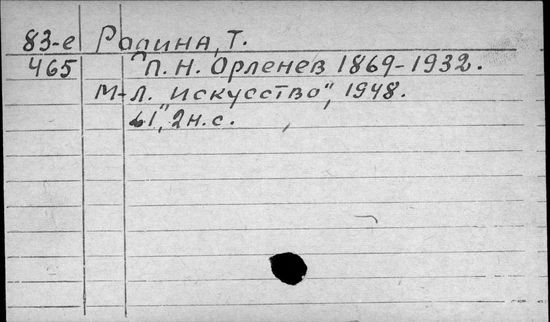 83-е Родина, Т.
465 П. Н. Орленев 1869-1932.
М-Л. „Искусство", 1948.
61, 2н.с.